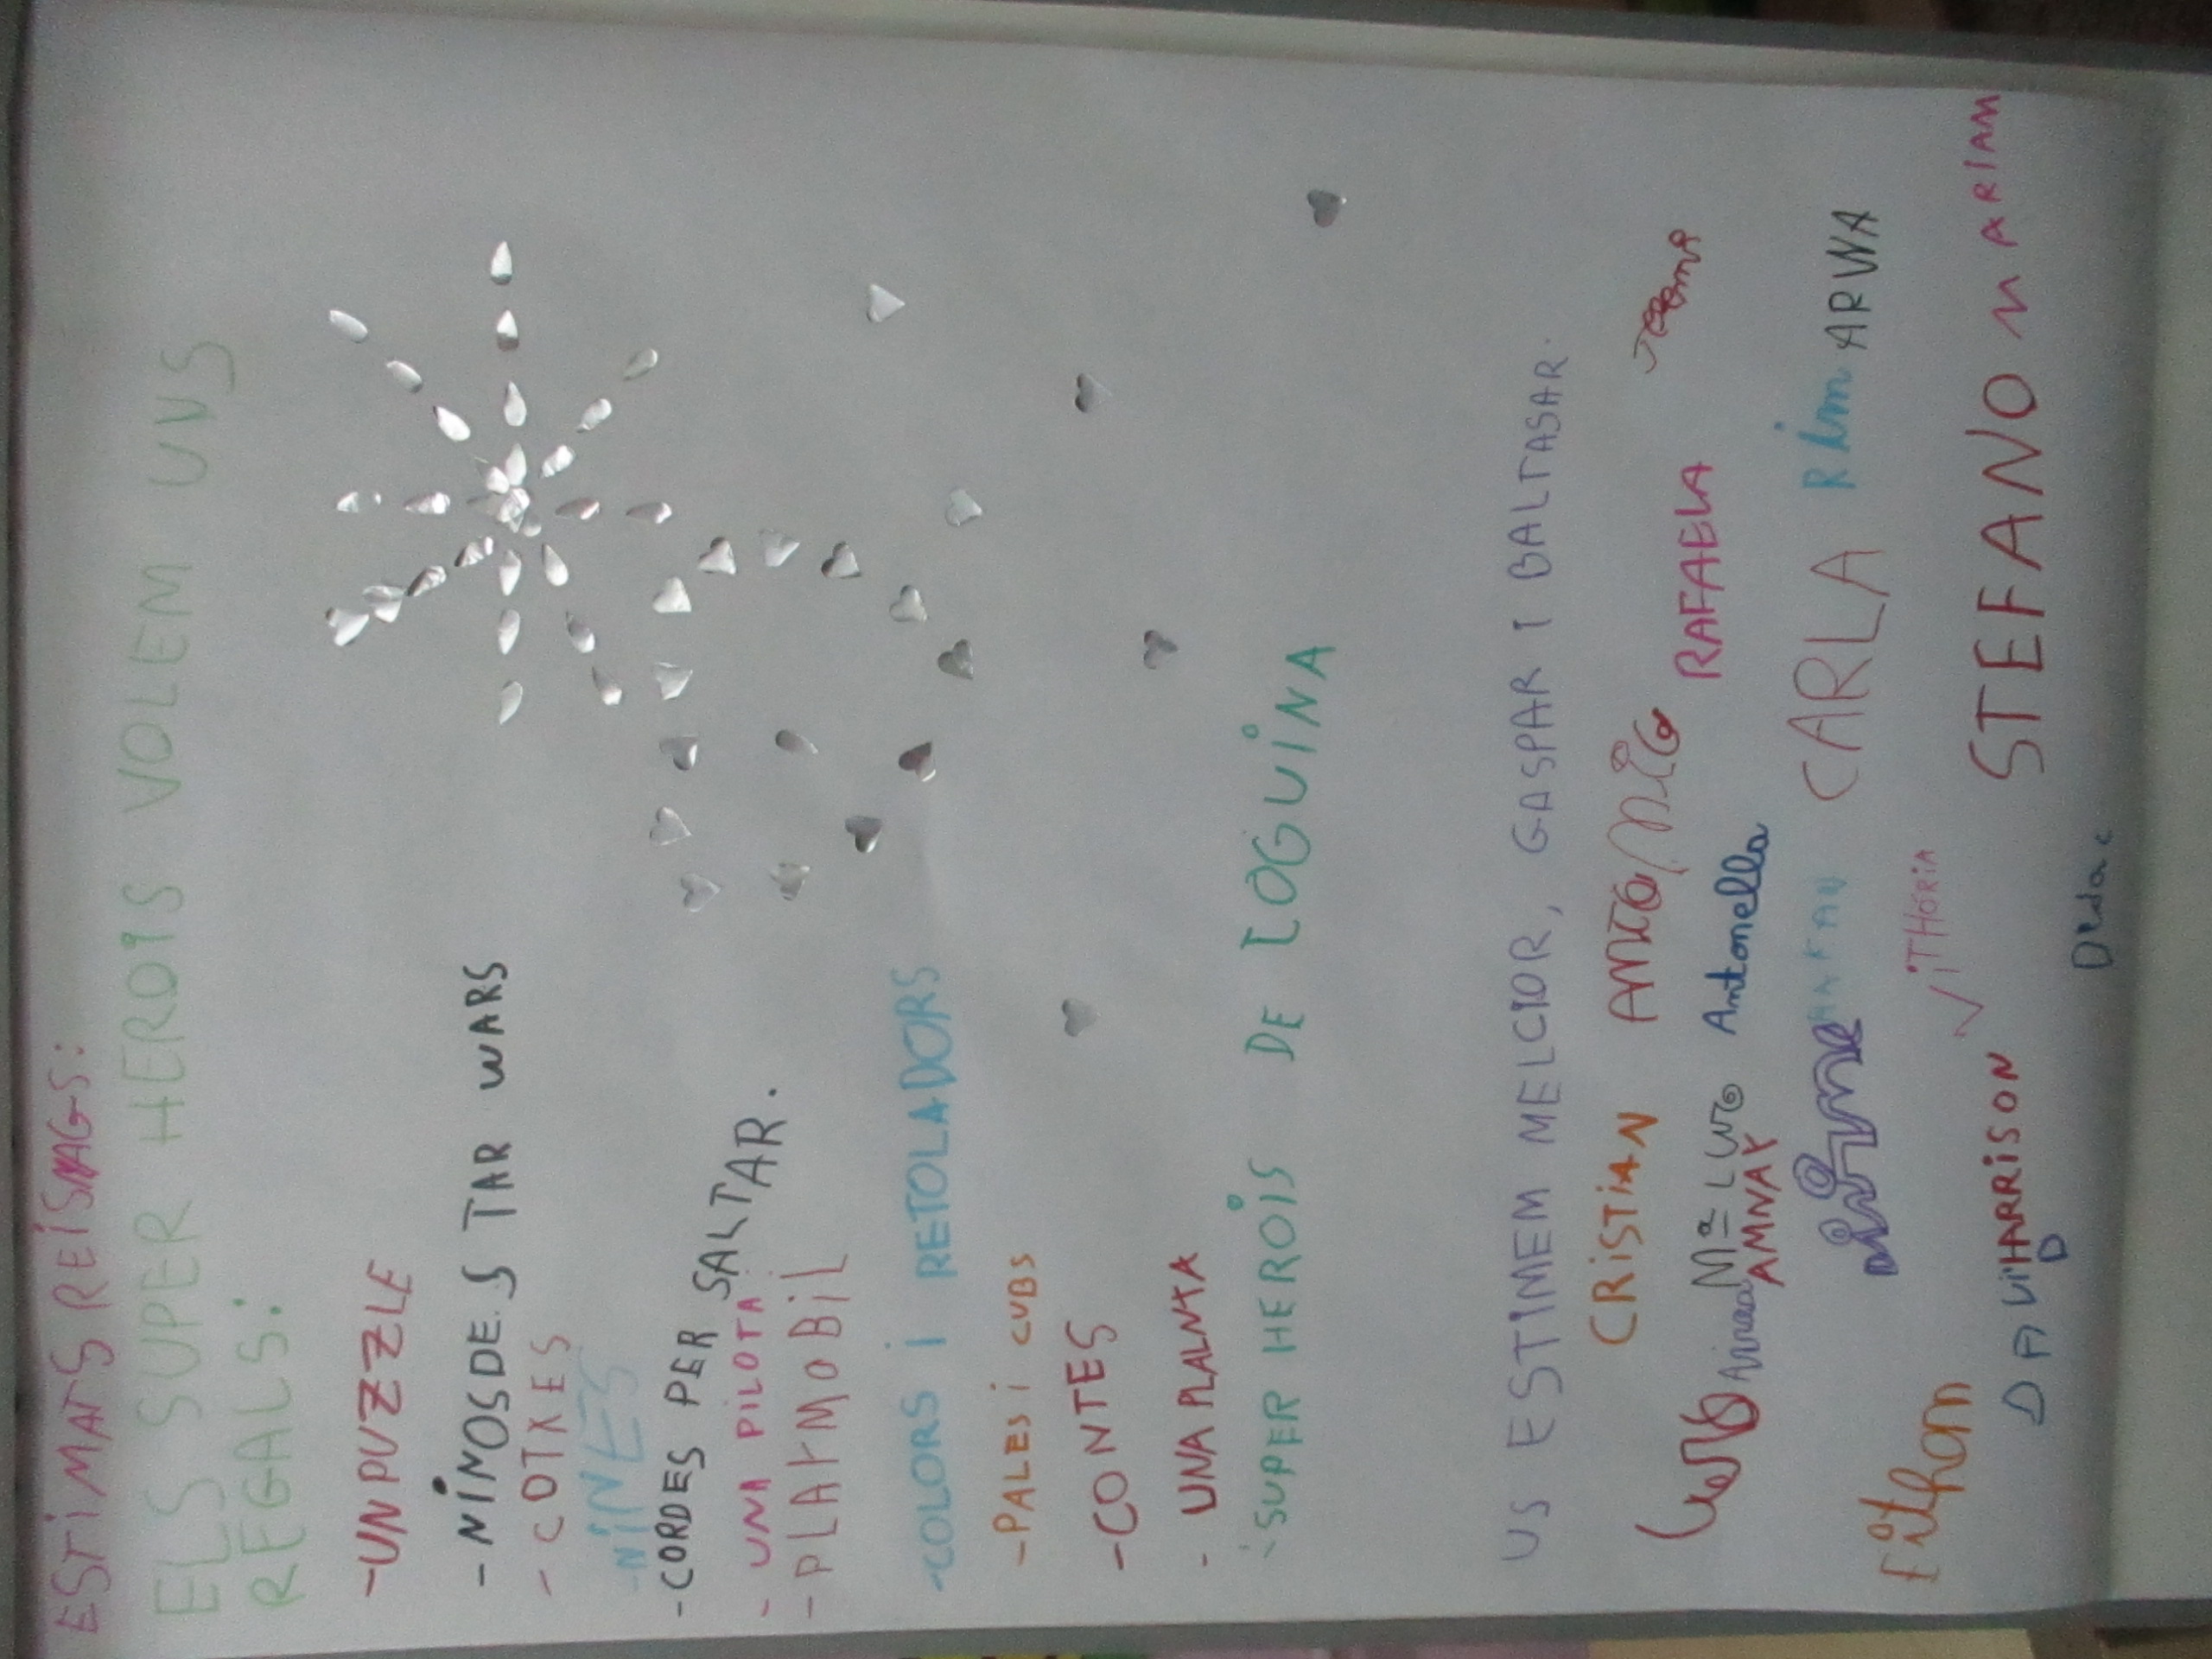 ESTIMATS REIS MAGS:
ELS SUPER HEROIS VOLEM UNS
REGALS:
-UN PUZZLE
-NINOS DE.STAR WARS
-COTXES
-NINES
-CORDES PER SALTAR.
- UNA PILOTA
-PLAYMOBIL
-COLORS I RETOLADORS
-PALES i CUBS
-CONTES
- UNA PLALNTA
-SUPER HEROIS DE COGUINA
US ESTIMEM MELCIOR, GASPAR I BALTASAR.
CRISTIAN ANTONIO RAFAELA
Ainea Mª LUO Antonella
AMNAY
CARLA Rim ARWA
ViTHORiA
HARRISON STEFANO MARIAM
DAViD
Dídac